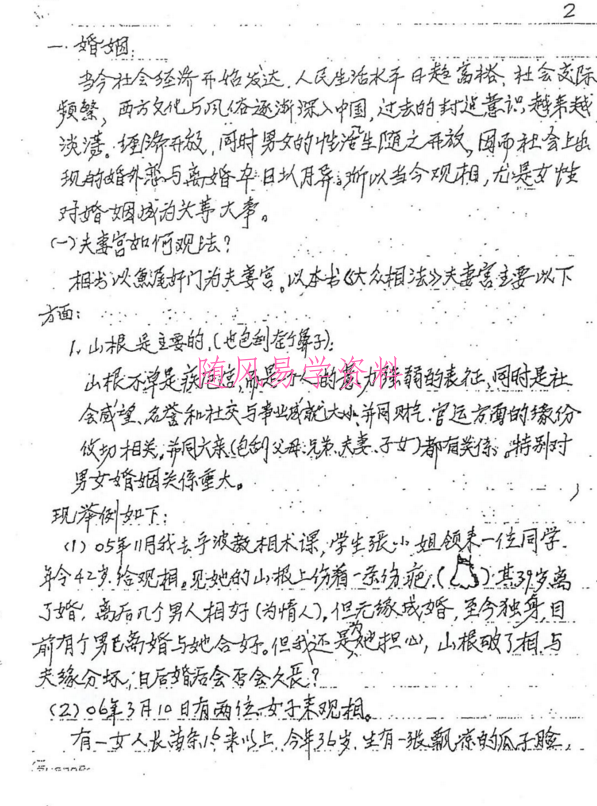 2
一、婚姻:
当今社会经济开始发达,人民生活水平日趋富裕、社会交际
频繁,西方文化与风俗逐渐深入中国,过去的封建意识越来越
淡薄。经济开放,同时男女的性活生随之开放,因而社会上出
现的婚外恋与离婚率日以月异。所以当今观相,尤是女性
对婚姻成为头等大事。
(一)夫妻宫如何观法?
相书以鱼尾奸门为夫妻宫。以本书《大众相法》夫妻宫主要以下
方面:
1、山根是主要的,(也包刮整个算子):
随风易学资料
山根不单是疾厄宫,而是个人的意力强弱的表征,同时是社
会威望、名誉和社交与事业成就大小,并同财气、官运方面的缘份
攸切相关。并同六亲(包刮父母、兄弟、夫妻、子女)都有关係。特别对
男女婚姻关係重大。
现举例如下:
(1)05年11月我去宁波教相术课,学生张小姐领来一位同学.
年令42岁.给观相。见她的山根上伤着一条伤疤,( )其39岁离
了婚,离后几个男人相好(为情人)。但无缘成婚,至今独身,目
前有个男已离婚与她合好。但我还是为她担心,山根破了相,与
夫缘分坏,日后婚后会否会久长?
(2)06年3月10日有两位女子来观相。
有一女人长苗条1.6米以上,今年36岁.生有一张飘凉的瓜子脸,